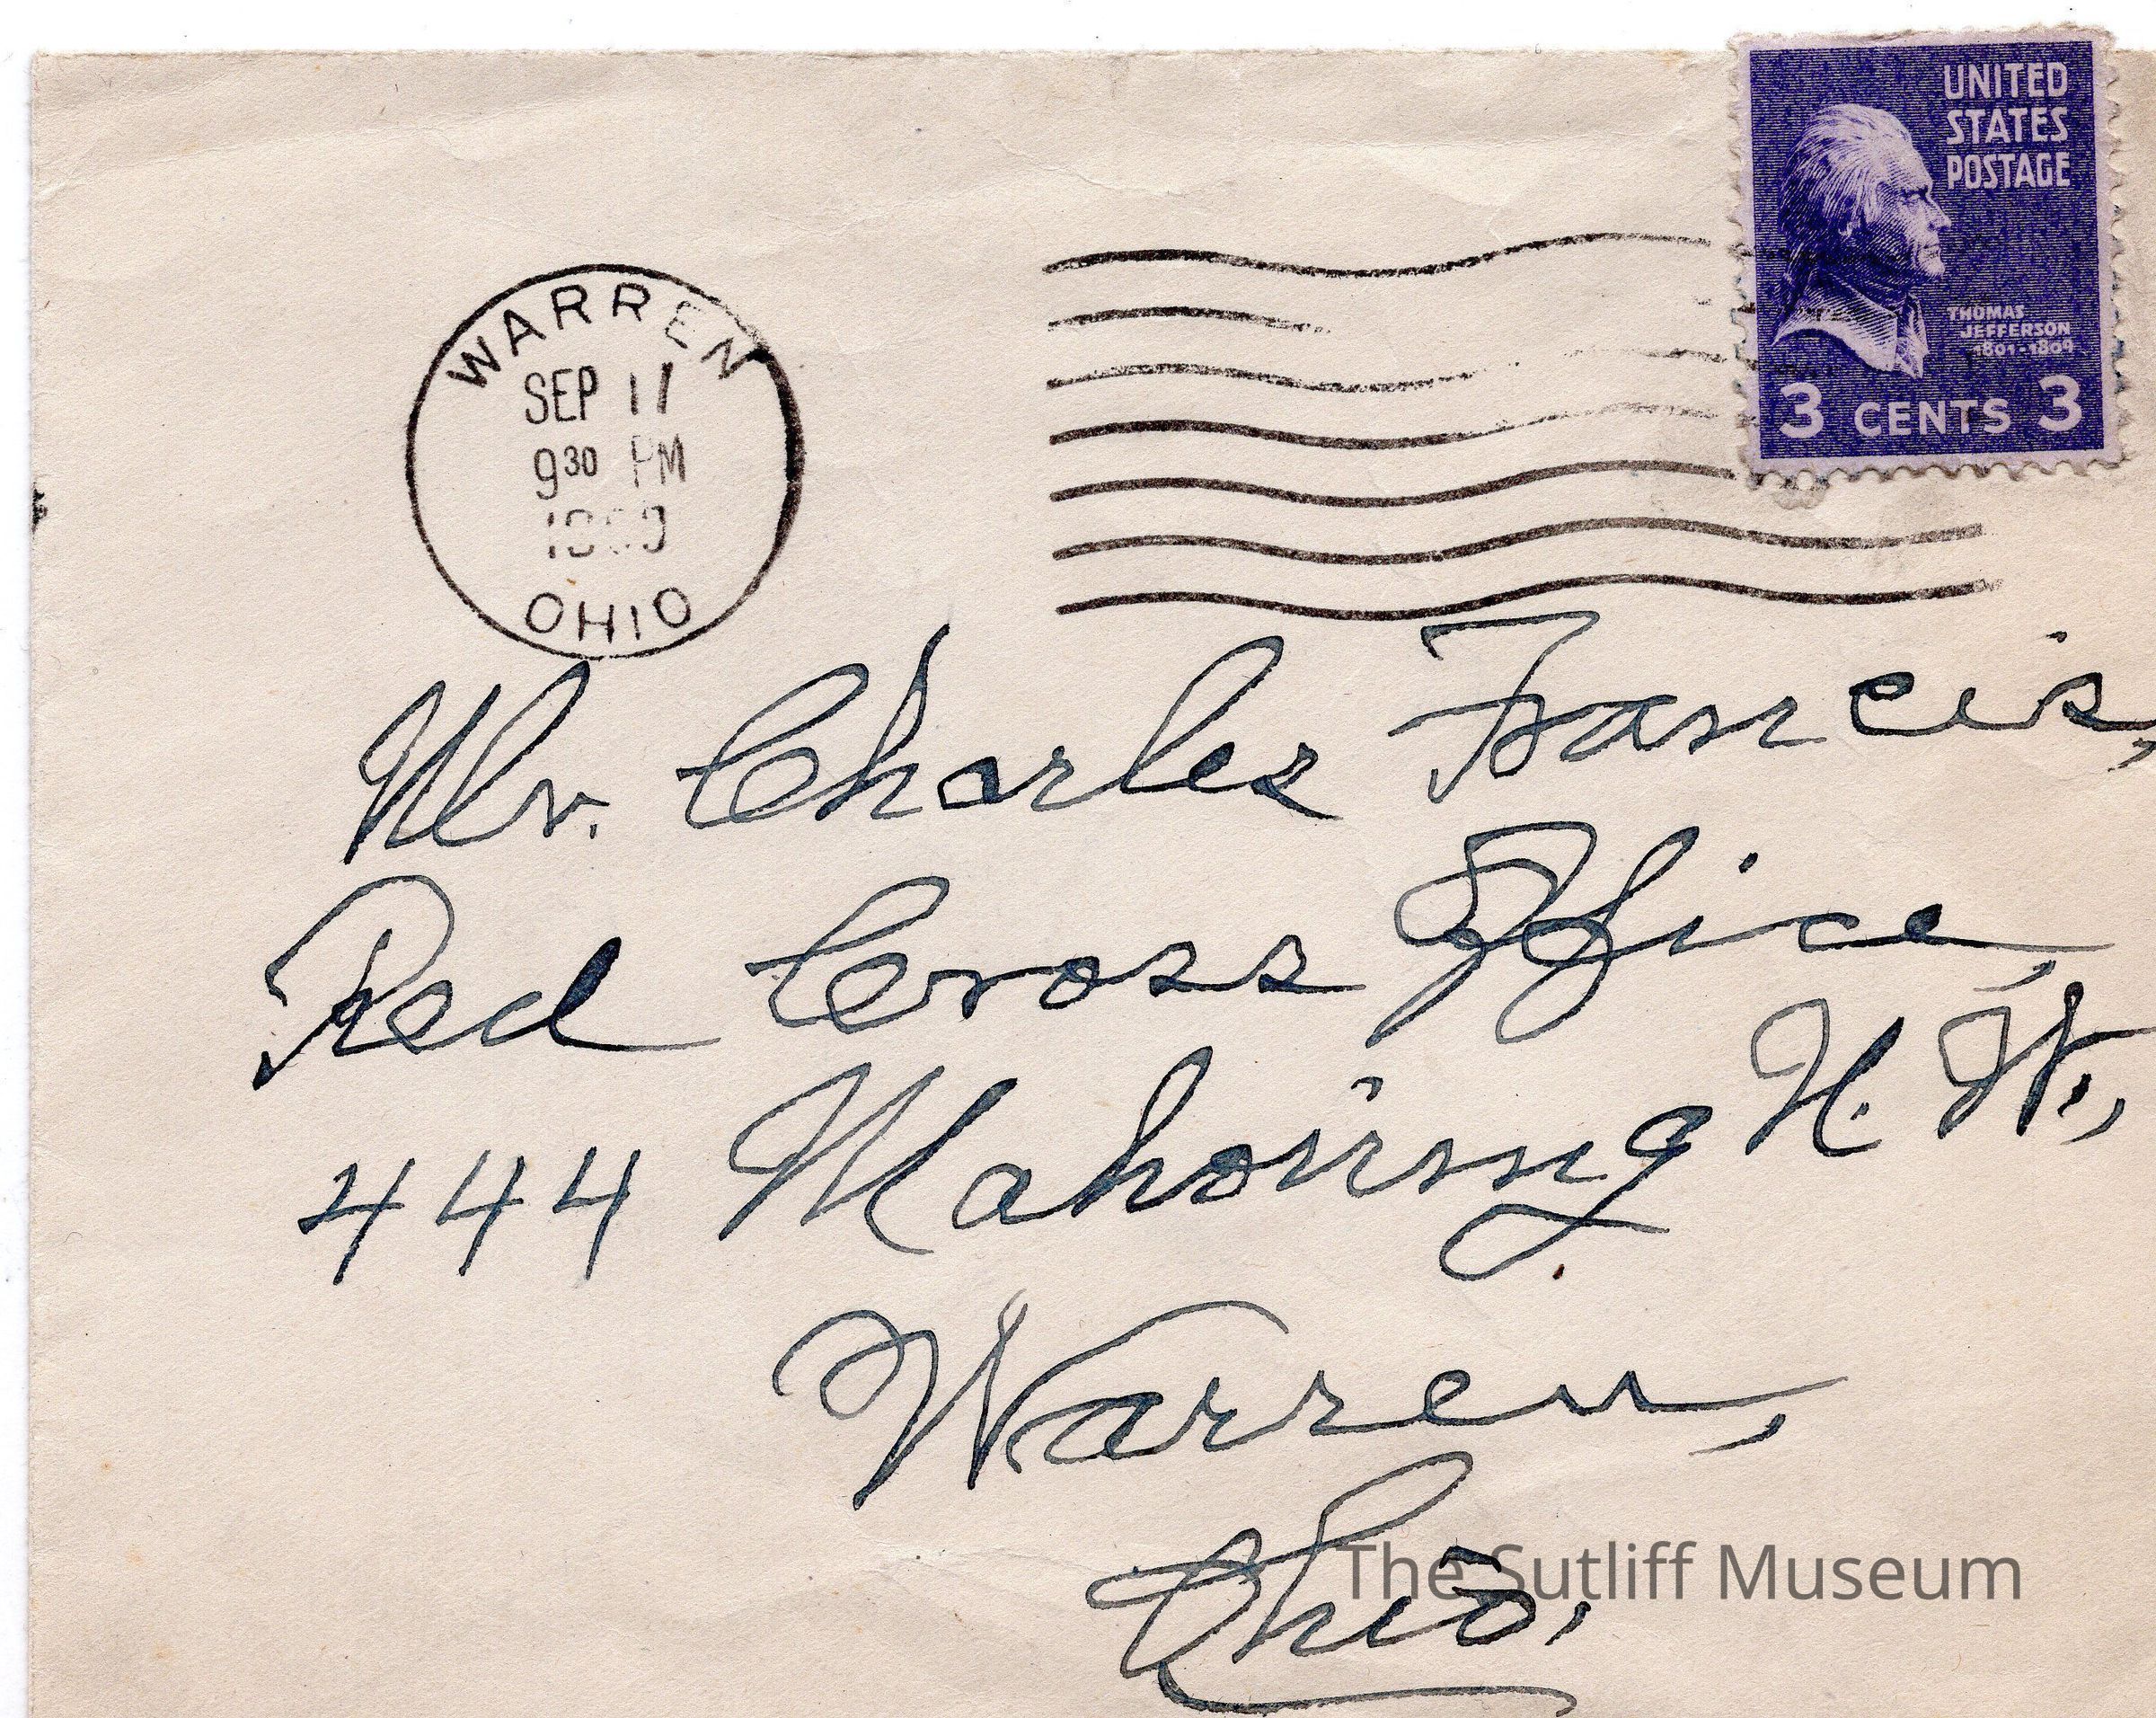 UNITED
STATES
POSTAGE
THOMAS
JEFFERSON
1801-1809
3 CENTS 3
WARREN
SEP 11
9 30 PM
OHIO
Mr. Charles Francis,
Red Cross Office,
444 Mahoning N. W.,
Warren,
Ohio.
The Sutliff Museum